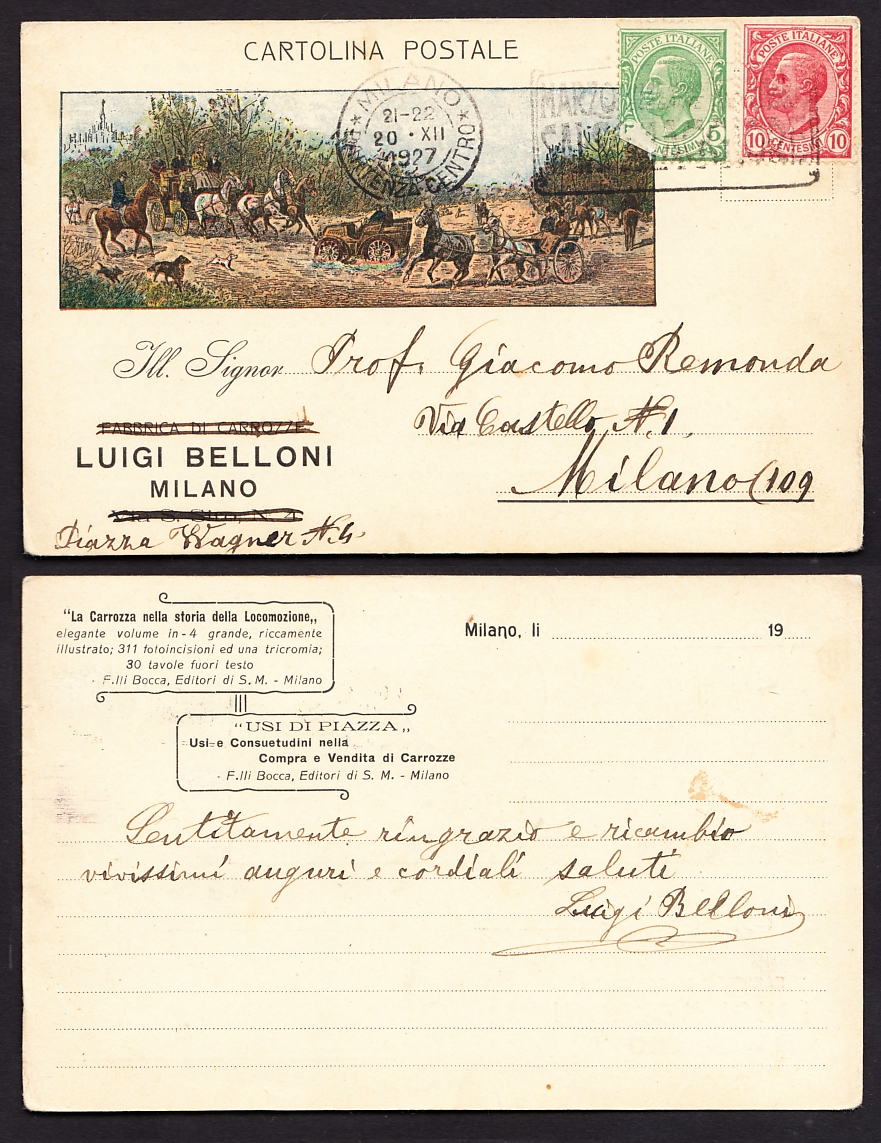 CARTOLINA POSTALE
POSTE ITALIANE
5
CENTESIMI
POSTE ITALIANE
10 CENTESIMI 10
MILANO
21-22
20 · XII
1927
CENTRO
MARZO
Ill. Signor Prof. Giacomo Remonda
Via Castello N. 1.
Milano (109
FABBRICA DI CARROZZE
LUIGI BELLONI
MILANO
Piazza Wagner N. 4.
"La Carrozza nella storia della Locomozione„
elegante volume in-4 grande, riccamente
illustrato; 311 fotoincisioni ed una tricromia;
30 tavole fuori testo
F.lli Bocca, Editori di S. M. - Milano
Milano, li 19
"USI DI PIAZZA„
Usi e Consuetudini nella
Compra e Vendita di Carrozze
F.lli Bocca, Editori di S. M. - Milano
Sentitamente ringrazio e ricambio
vivissimi auguri e cordiali saluti
Luigi Belloni